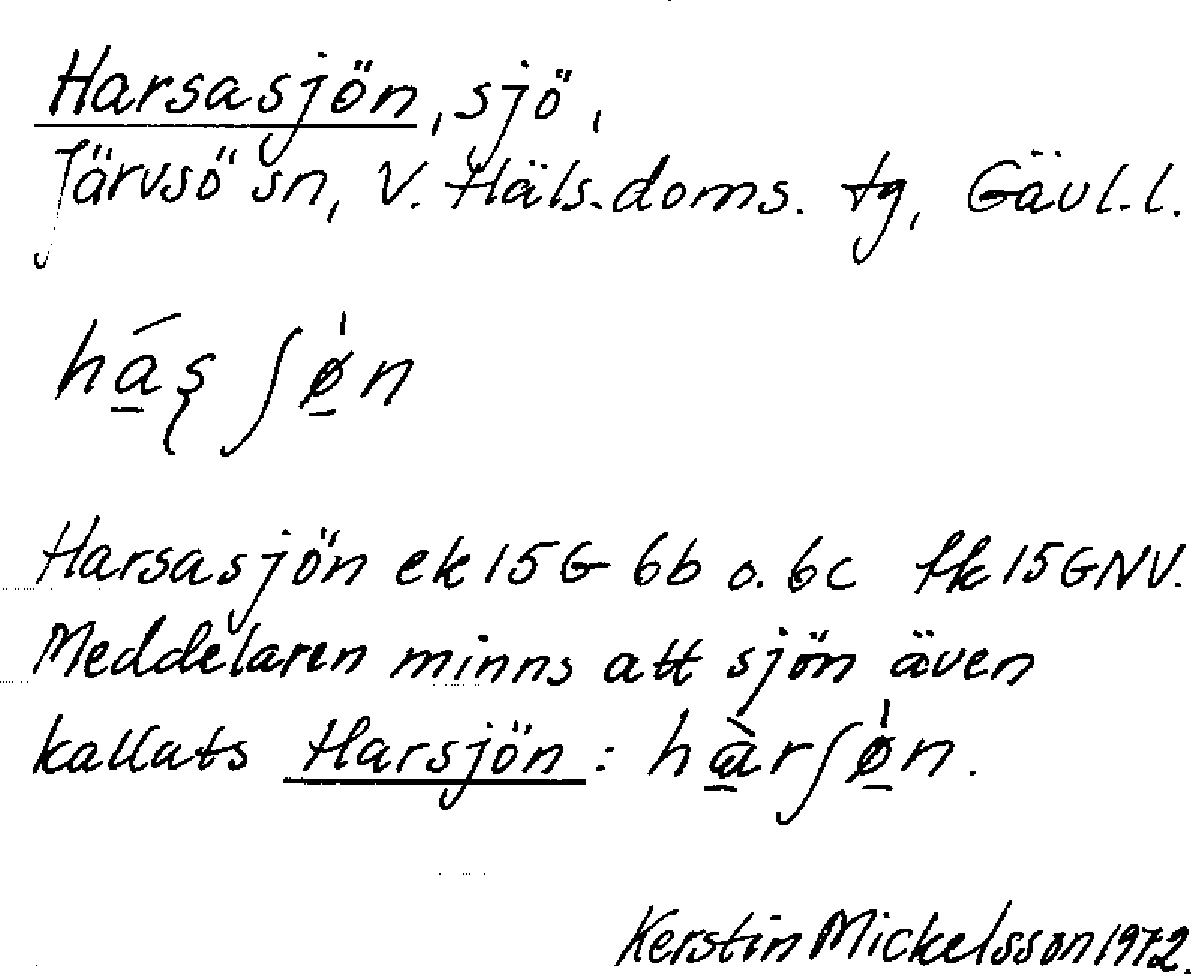 Harsasjön, sjö,
Järvsö sn, V. Häls. doms. tg, Gävl. l.
há̠ʂ ʃø̠̍n
Harsasjön ek 15G 6b o. 6c fk 15G NV.
Meddelaren minns att sjön även
kallats Harsjön: hà̠rʃø̠̍n.
Kerstin Mickelsson 1972.